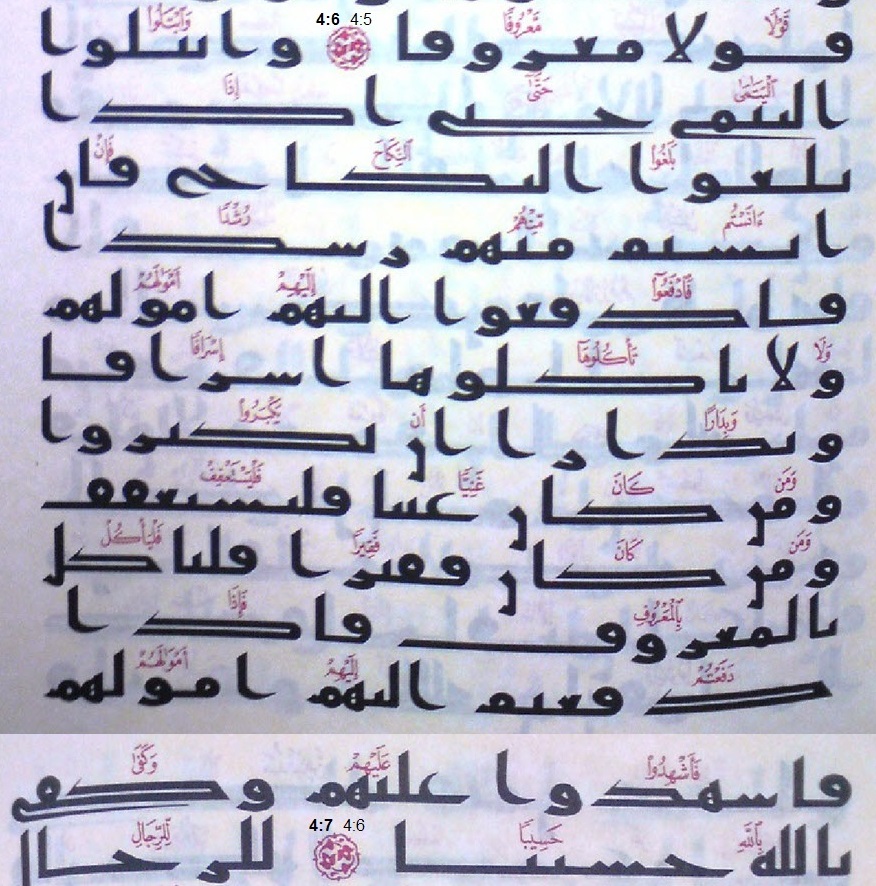 قَوْلًا مَّعْرُوفًا 4:6 4:5 وَابْتَلُوا
قولا معروفا وابتلوا
الْيَتَٰمَىٰ حَتَّىٰ إِذَا
اليتمى حتى اذا
بَلَغُوا النِّكَاحَ فَإِنْ
بلغوا النكاح فان
ءَانَسْتُم مِّنْهُمْ رُشْدًا
انستم منهم رشدا
فَادْفَعُوا إِلَيْهِمْ أَمْوَٰلَهُمْ
فادفعوا اليهم امولهم
وَلَا تَأْكُلُوهَا إِسْرَافًا
ولا تاكلوها اسرافا
وَبِدَارًا أَن يَكْبَرُوا
وبدارا ان يكبروا
وَمَن كَانَ غَنِيًّا فَلْيَسْتَعْفِفْ
ومن كان غنيا فليستعفف
وَمَن كَانَ فَقِيرًا فَلْيَأْكُلْ
ومن كان فقيرا فلياكل
بِالْمَعْرُوفِ فَإِذَا
بالمعروف فاذا
دَفَعْتُمْ إِلَيْهِمْ أَمْوَٰلَهُمْ
دفعتم اليهم امولهم
فَأَشْهِدُوا عَلَيْهِمْ وَكَفَىٰ
فاشهدوا عليهم وكفى
بِاللَّهِ حَسِيبًا 4:7 4:6 لِّلرِّجَالِ
بالله حسيبا للرجال